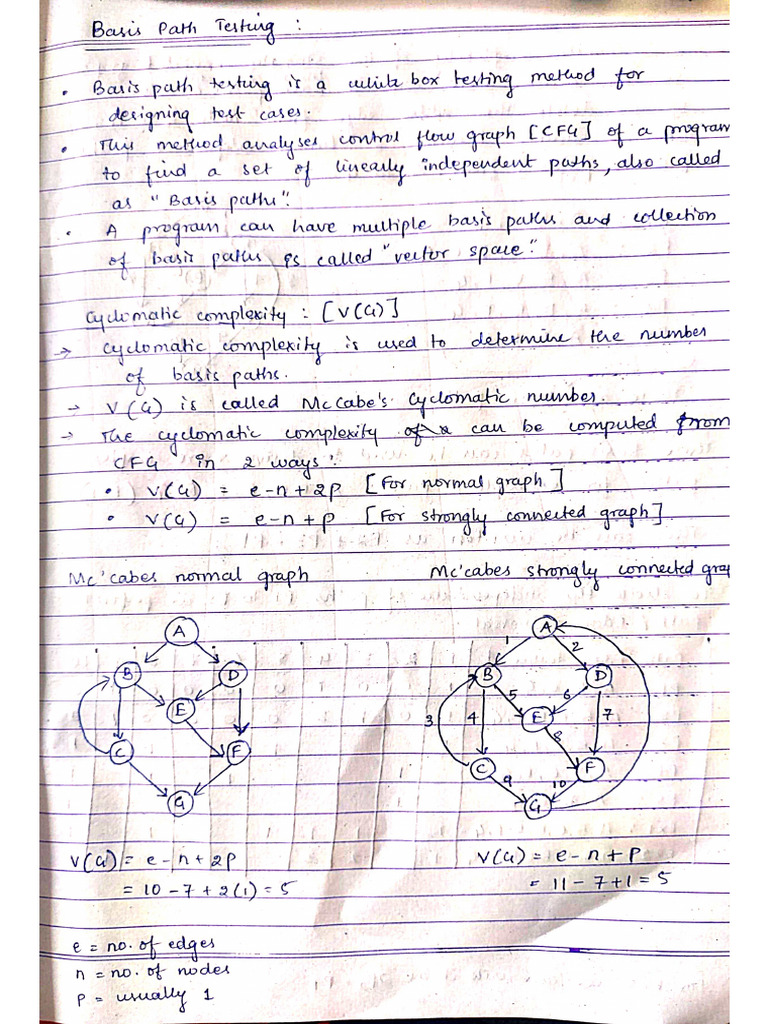 Basis Path Testing :
• Basis path testing is a white box testing method for
designing test cases.
• This method analyses control flow graph [CFG] of a program
to find a set of linearly independent paths, also called
as "Basis paths".
• A program can have multiple basis paths and collection
of basis paths is called "vector space".
Cyclomatic complexity : [V(G)]
→ Cyclomatic complexity is used to determine the number
of basis paths.
→ V(G) is called McCabe's Cyclomatic number.
→ The cyclomatic complexity of can be computed from
CFG in 2 ways:
• V(G) = e-n+2p [For normal graph]
• V(G) = e-n+p [For strongly connected graph]
Mc'cabes normal graph
Mc'cabes strongly connected grap
A
B D
E
C F
G
A
1 2
B D
5 6
3 4 E 7
8
C F
9 10
G
V(G) = e-n+2p
= 10-7+2(1)=5
V(G) = e-n+p
= 11-7+1=5
e = no. of edges
n = no. of nodes
p = usually 1